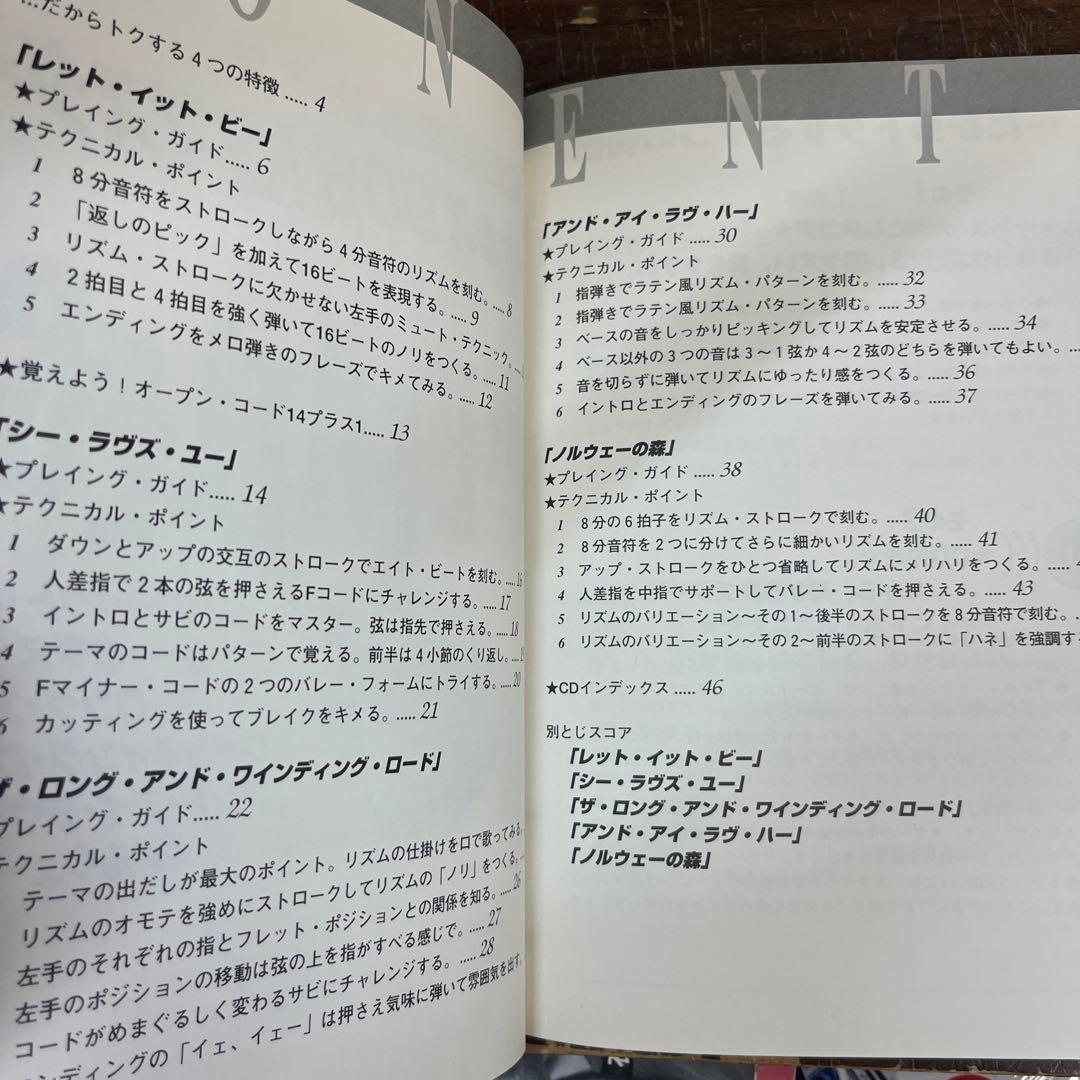 O N
…だからトクする4つの特徴.....4
「レット・イット・ビー」
★プレイング・ガイド.....6
★テクニカル・ポイント
1 8分音符をストロークしながら4分音符のリズムを刻む。.....8
2 「返しのピック」を加えて16ビートを表現する。.....9
3 リズム・ストロークに欠かせない左手のミュート・テクニック。
4 2拍目と4拍目を強く弾いて16ビートのノリをつくる。.....11
5 エンディングをメロ弾きのフレーズでキメてみる。.....12
★覚えよう！オープン・コード14プラス1.....13
「シー・ラヴズ・ユー」
★プレイング・ガイド.....14
★テクニカル・ポイント
1 ダウンとアップの交互のストロークでエイト・ビートを刻む。.....16
2 人差指で2本の弦を押さえるFコードにチャレンジする。.....17
3 イントロとサビのコードをマスター。弦は指先で押さえる。.....18
4 テーマのコードはパターンで覚える。前半は4小節のくり返し。.....
5 Fマイナー・コードの2つのバレー・フォームにトライする。.....20
6 カッティングを使ってブレイクをキメる。.....21
ザ・ロング・アンド・ワインディング・ロード」
プレイング・ガイド.....22
テクニカル・ポイント
テーマの出だしが最大のポイント。リズムの仕掛けを口で歌ってみる。
リズムのオモテを強めにストロークしてリズムの「ノリ」をつくる。
左手のそれぞれの指とフレット・ポジションとの関係を知る。.....26
左手のポジションの移動は弦の上を指がすべる感じで。.....27
コードがめまぐるしく変わるサビにチャレンジする。.....28
ンディングの「イェ、イェー」は押さえ気味に弾いて雰囲気を出す。
E N T
「アンド・アイ・ラヴ・ハー」
★プレイング・ガイド.....30
★テクニカル・ポイント
1 指弾きでラテン風リズム・パターンを刻む。.....32
2 指弾きでラテン風リズム・パターンを刻む。.....33
3 ベースの音をしっかりピッキングしてリズムを安定させる。.....34
4 ベース以外の3つの音は3〜1弦か4〜2弦のどちらを弾いてもよい。..
5 音を切らずに弾いてリズムにゆったり感をつくる。.....36
6 イントロとエンディングのフレーズを弾いてみる。.....37
「ノルウェーの森」
★プレイング・ガイド.....38
★テクニカル・ポイント
1 8分の6拍子をリズム・ストロークで刻む。.....40
2 8分音符を2つに分けてさらに細かいリズムを刻む。.....41
3 アップ・ストロークをひとつ省略してリズムにメリハリをつくる。.....
4 人差指を中指でサポートしてバレー・コードを押さえる。.....43
5 リズムのバリエーション〜その1〜後半のストロークを8分音符で刻む。...
6 リズムのバリエーション〜その2〜前半のストロークに「ハネ」を強調す
★CDインデックス.....46
別とじスコア
「レット・イット・ビー」
「シー・ラヴズ・ユー」
「ザ・ロング・アンド・ワインディング・ロード」
「アンド・アイ・ラヴ・ハー」
「ノルウェーの森」